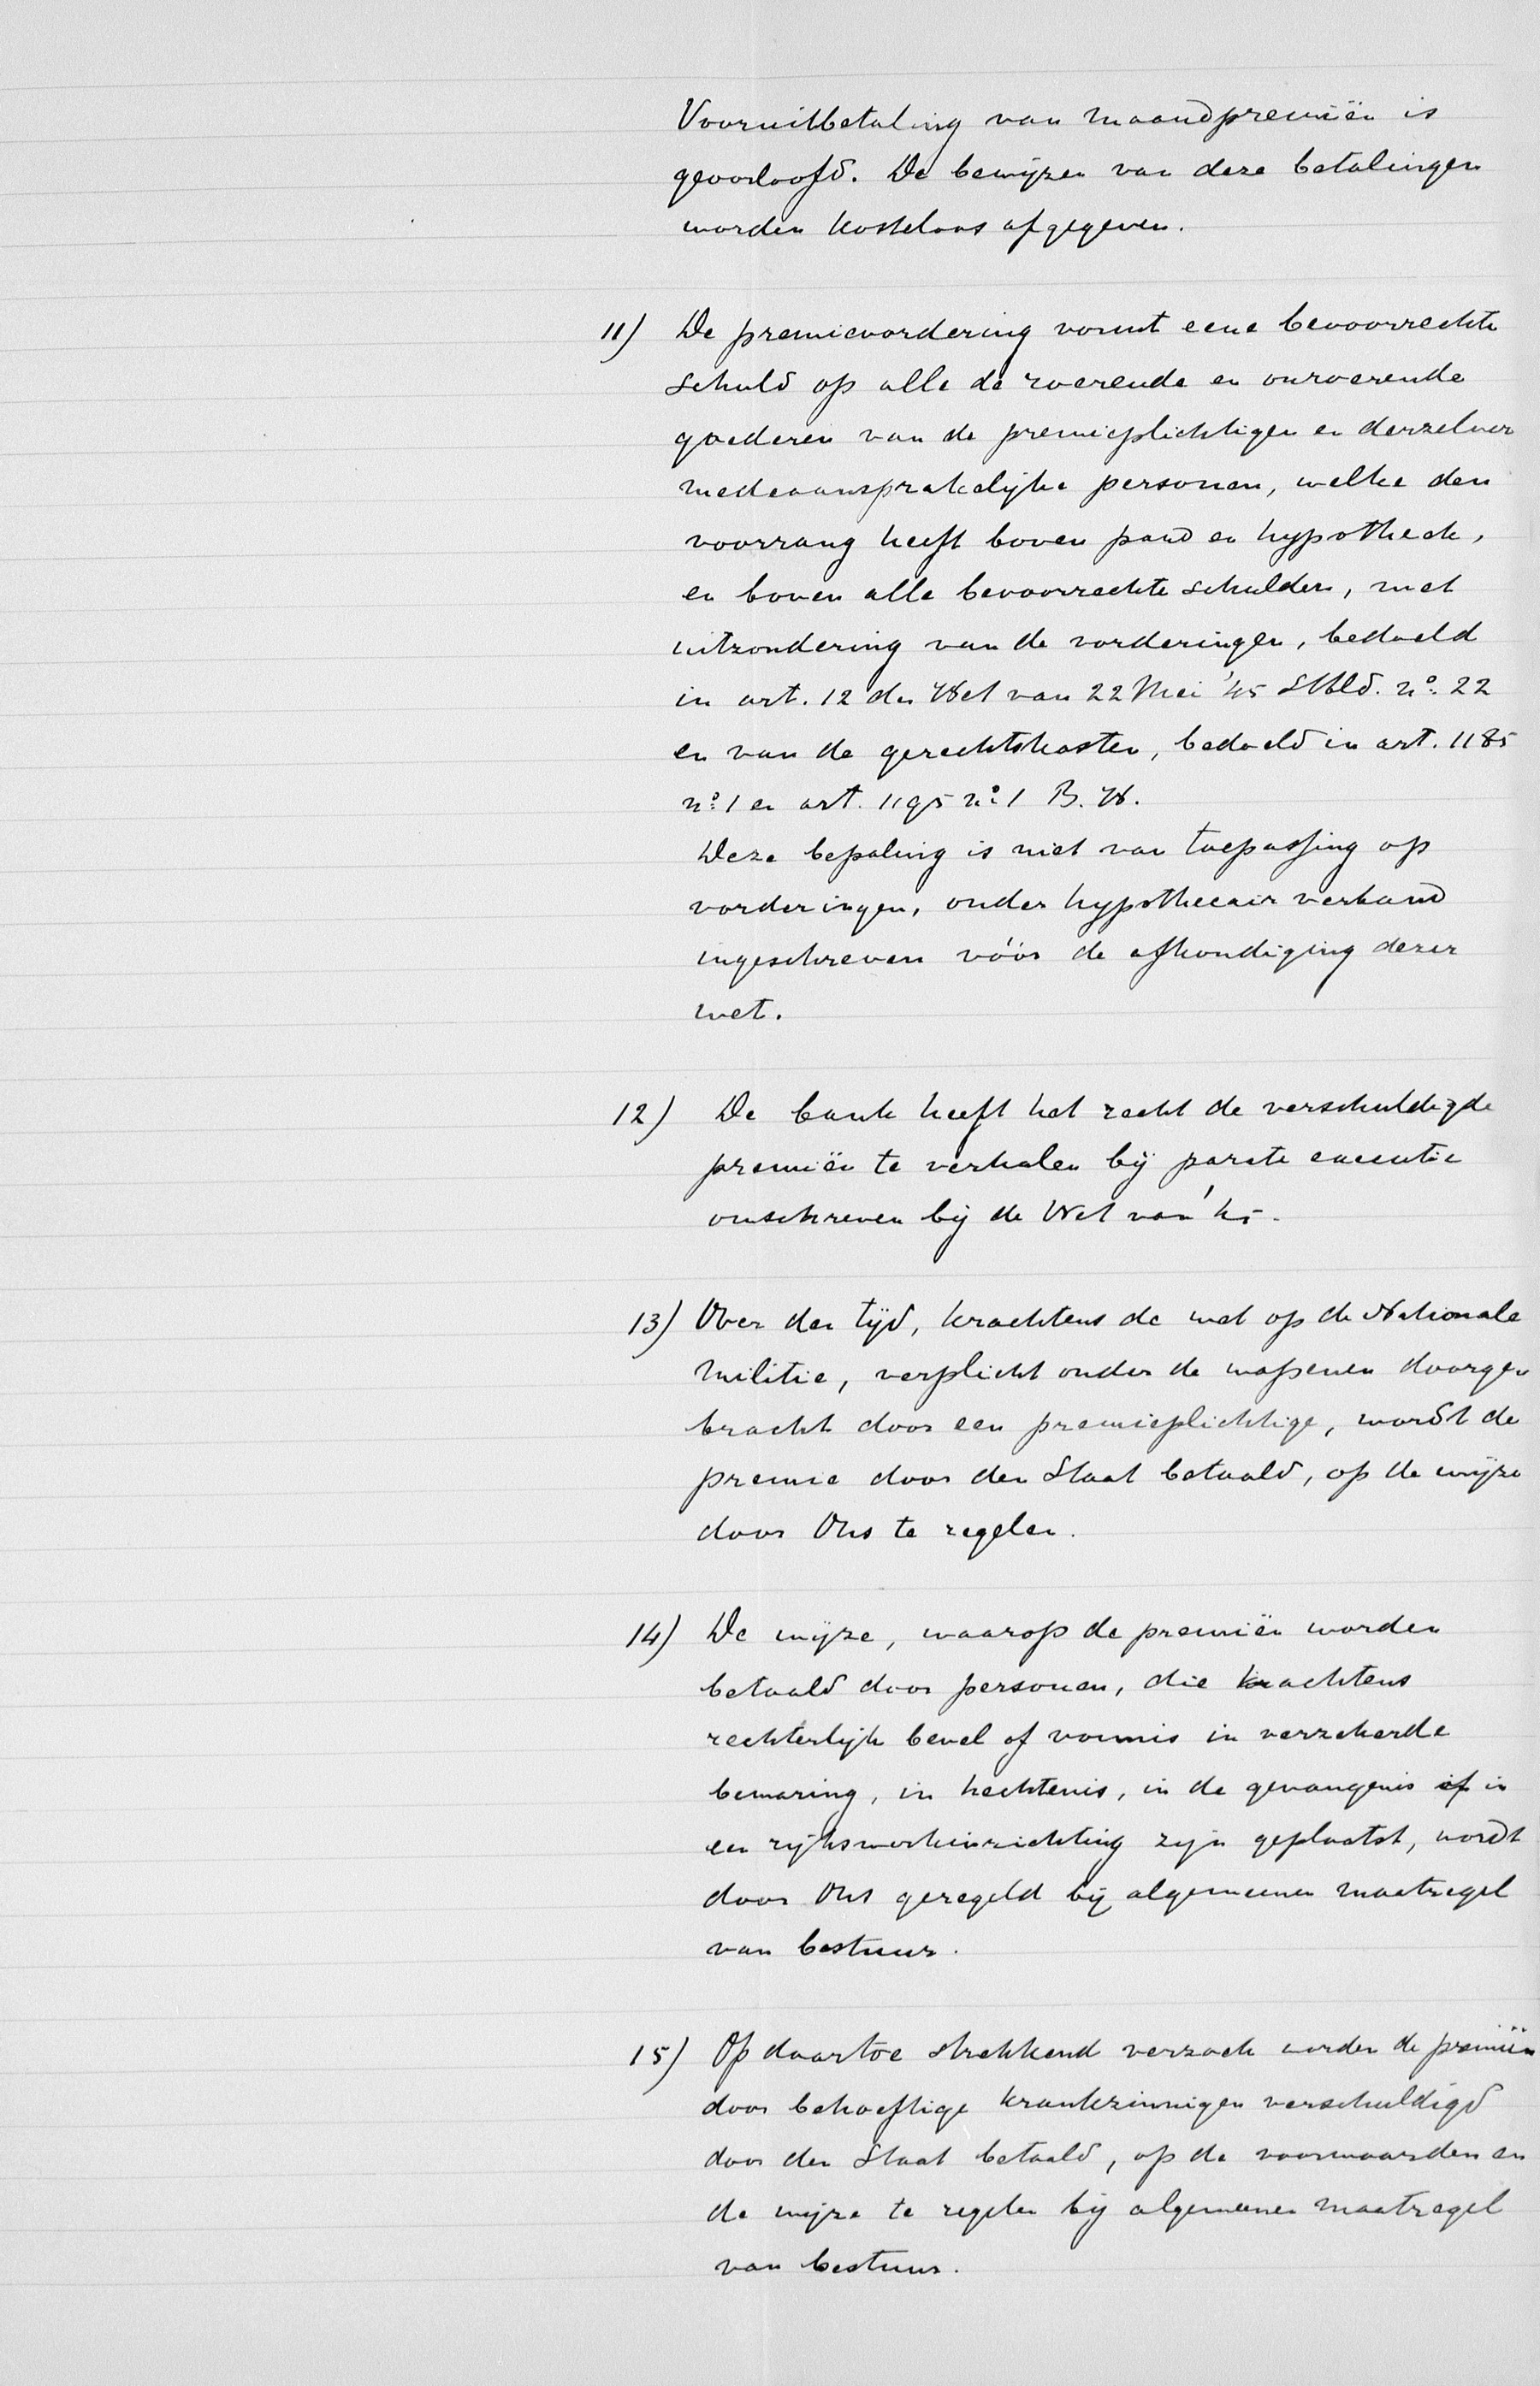 Vooruitbetaling van maandpremiën is
geoorloofd. De bewijzen van deze betalingen
worden kosteloos afgegeven.
11) De premievordering vormt eene bevoorrechte
schuld op alle de roerende en onroerende
goederen van de premieplichtigen en derzelver
medeaansprakelijke personen, welke den
voorrang heeft boven pand en hypotheek,
en boven alle bevoorrechte schulden, met
uitzondering van de vorderingen, bedoeld
in art. 12 der Wet van 22 Mei '45 Stbld. nº. 22
en van de gerechtskosten, bedoeld in art. 1185
nº. 1 en art. 1195 nº. 1 B. W.
Deze bepaling is niet van toepassing op
vorderingen, onder hypothecair verband
ingeschreven vóór de afkondiging dezer
wet.
12) De bank heeft het recht de verschuldigde
premiën te verhalen bij parate executie
omschreven bij de Wet van '45.
13) Over den tijd, krachtens de wet op de Nationale
militie, verplicht onder de wapenen doorge-
bracht door een premieplichtige, wordt de
premie door den Staat betaald, op de wijze
door Ons te regelen.
14) De wijze, waarop de premiën worden
betaald door personen, die krachtens
rechterlijk bevel of vonnis in verzekerde
bewaring, in hechtenis, in de gevangenis of in
een rijkswerkinrichting zijn geplaatst, wordt
door Ons geregeld bij algemeenen maatregel
van bestuur.
15) Op daartoe strekkend verzoek worden de premiën
door behoeftige krankzinnigen verschuldigd
door den Staat betaald, op de voorwaarden en
de wijze te regelen bij algemeenen maatregel
van bestuur.